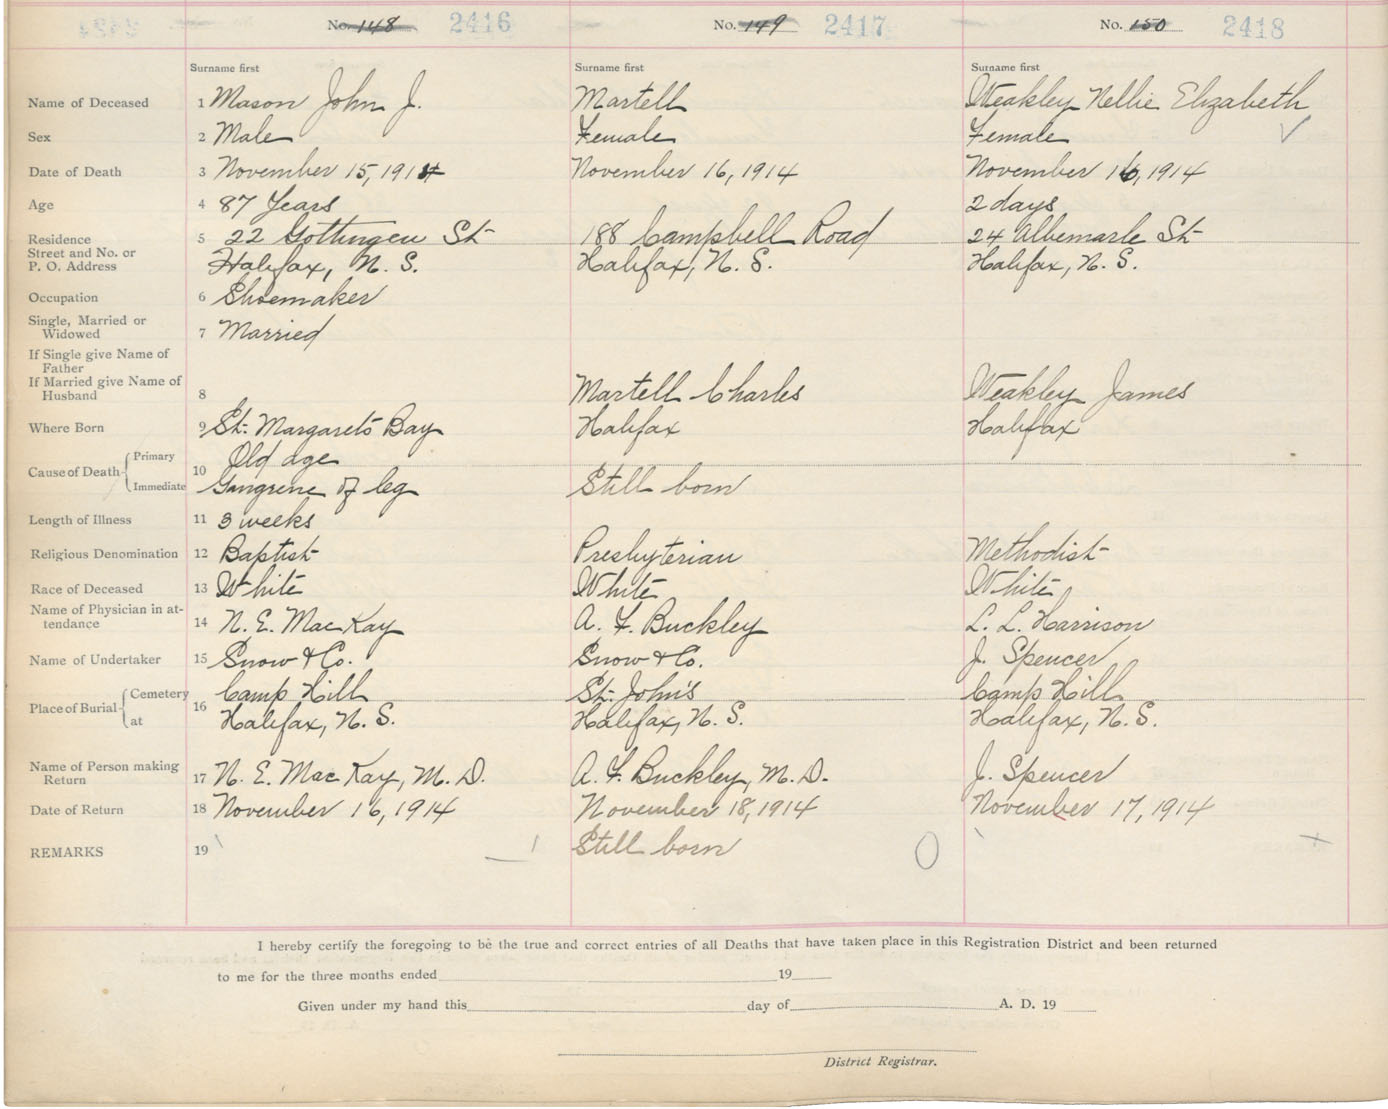 No. 148 2416 No. 149 2417 No. 150 2418
Surname first Surname first Surname first
Name of Deceased 1 Mason John J. Martell Weakley Nellie Elizabeth
Sex 2 Male Female Female ✓
Date of Death 3 November 15, 1914 November 16, 1914 November 16, 1914
Age 4 87 Years 2 days
Residence 5 22 Gottingen St 188 Campbell Road 24 Albemarle St
Street and No. or
P. O. Address Halifax, N. S. Halifax, N. S. Halifax, N. S.
Occupation 6 Shoemaker
Single, Married or
Widowed 7 Married
If Single give Name of
Father
If Married give Name of
Husband 8 Martell Charles Weakley James
Where Born 9 St. Margaret's Bay Halifax Halifax
Cause of Death Primary 10 Old age
Immediate Gangrene of leg Still born
Length of Illness 11 3 weeks
Religious Denomination 12 Baptist Presbyterian Methodist
Race of Deceased 13 White White White
Name of Physician in at-
tendance 14 N. E. MacKay A. F. Buckley L. L. Harrison
Name of Undertaker 15 Snow & Co. Snow & Co. J. Spencer
Place of Burial Cemetery 16 Camp Hill St. John's Camp Hill
at Halifax, N. S. Halifax, N. S. Halifax, N. S.
Name of Person making
Return 17 N. E. MacKay, M. D. A. F. Buckley, M. D. J. Spencer
Date of Return 18 November 16, 1914 November 18, 1914 November 17, 1914
REMARKS 19 Still born
I hereby certify the foregoing to be the true and correct entries of all Deaths that have taken place in this Registration District and been returned
to me for the three months ended 19
Given under my hand this day of A. D. 19
District Registrar.